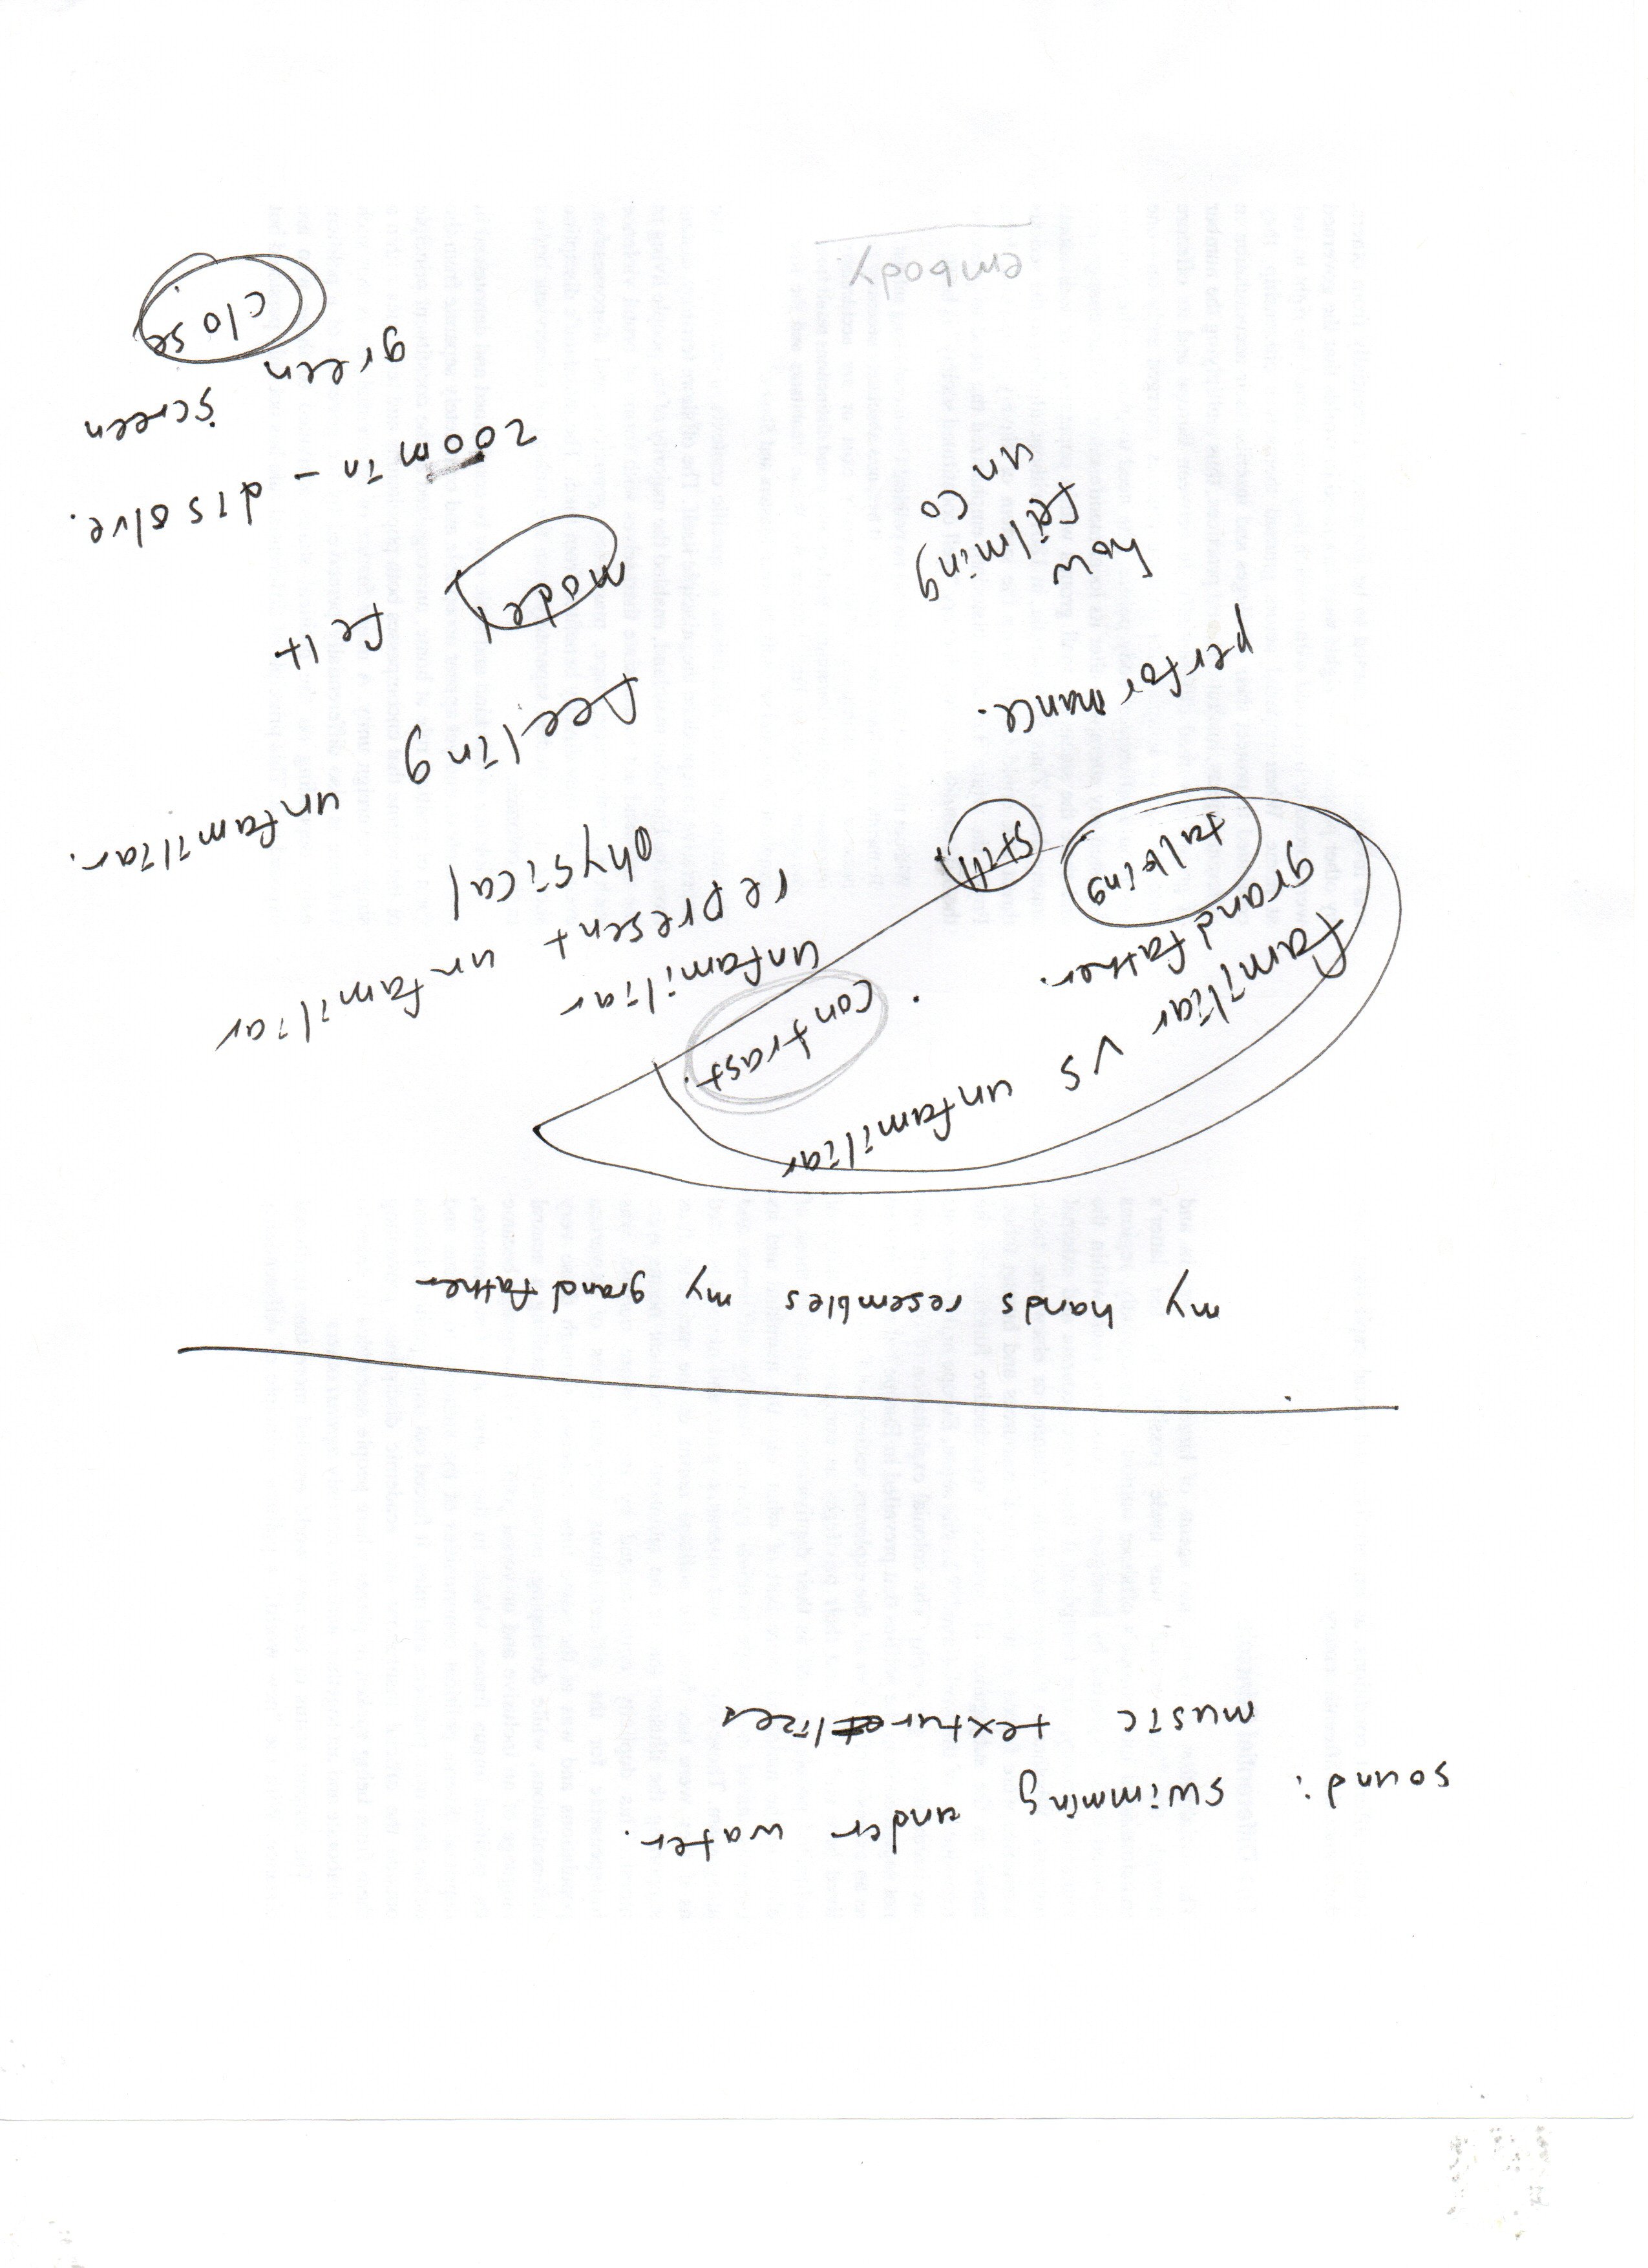 sound: swimming under water.
music texturelizes
my hands resembles my grand father
familiar vs unfamiliar
grand father.
contrast.
talking
still.
unfamiliar
represent unfamiliar
physical
performance.
feeling unfamiliar.
how
feilming
un co
model felt
zoom in - dissolve.
green screen
close
embody